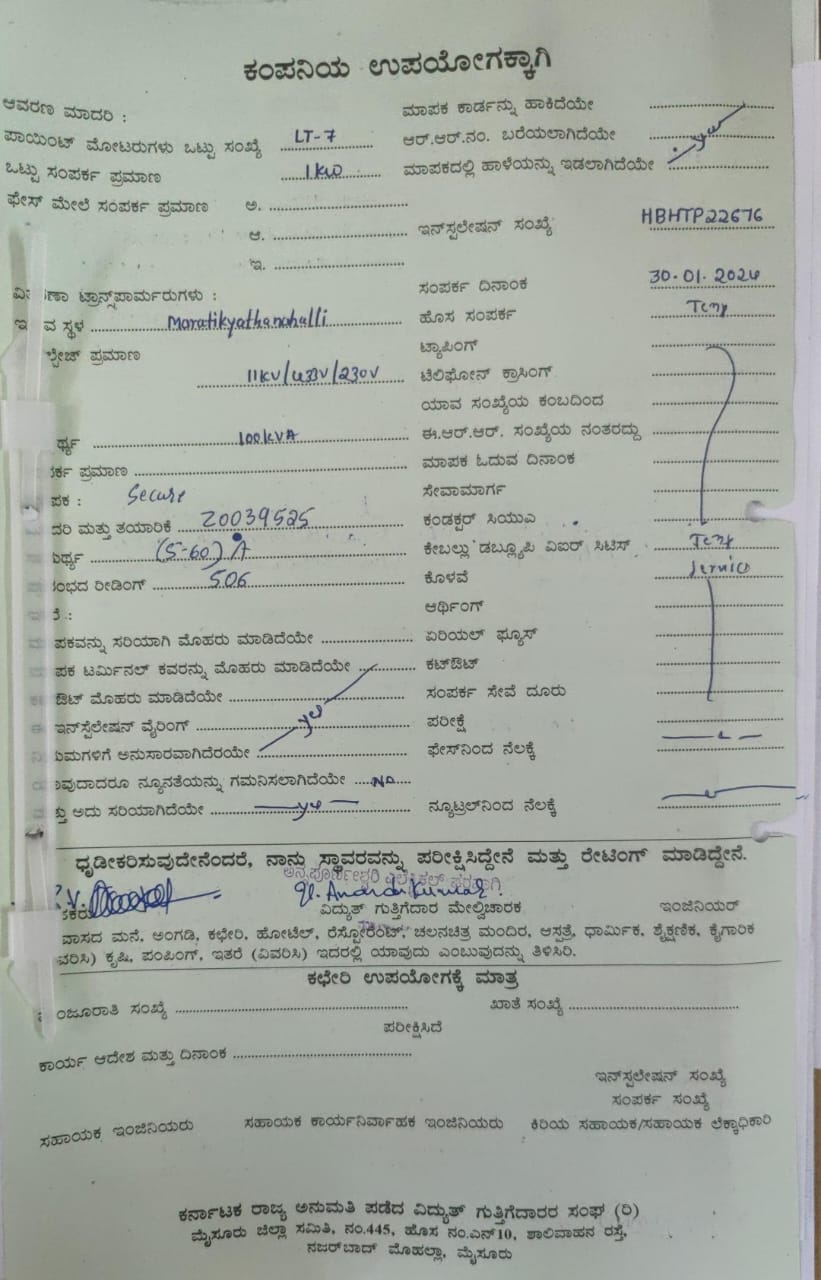 ಕಂಪನಿಯ ಉಪಯೋಗಕ್ಕಾಗಿ
ಆವರಣ ಮಾದರಿ :
ಮಾಪಕ ಕಾರ್ಡನ್ನು ಹಾಕಿದೆಯೇ
ಪಾಯಿಂಟ್ ಮೋಟರುಗಳು ಒಟ್ಟು ಸಂಖ್ಯೆ LT-7
ಆರ್.ಆರ್.ನಂ. ಬರೆಯಲಾಗಿದೆಯೇ
ಒಟ್ಟು ಸಂಪರ್ಕ ಪ್ರಮಾಣ 1KW
ಮಾಪಕದಲ್ಲಿ ಹಾಳೆಯನ್ನು ಇಡಲಾಗಿದೆಯೇ
ಫೇಸ್ ಮೇಲೆ ಸಂಪರ್ಕ ಪ್ರಮಾಣ ಅ.
ಆ.
ಇನ್‌ಸ್ಪಲೇಷನ್ ಸಂಖ್ಯೆ HBHTP22676
ಇ.
ಸಂಪರ್ಕ ದಿನಾಂಕ 30.01.2024
ಣಾ ಟ್ರಾನ್ಸ್‌ಫಾರ್ಮರುಗಳು :
ಸ್ಥಳ Maratikyathanahalli
ಹೊಸ ಸಂಪರ್ಕ Temp
ಪ್ರಮಾಣ
ಟ್ಯಾಪಿಂಗ್
11KV/433V/230V
ಟೆಲಿಫೋನ್ ಕ್ರಾಸಿಂಗ್
ಯಾವ ಸಂಖ್ಯೆಯ ಕಂಬದಿಂದ
100KVA
ಈ.ಆರ್.ಆರ್. ಸಂಖ್ಯೆಯ ನಂತರದ್ದು
ಪ್ರಮಾಣ
ಮಾಪಕ ಓದುವ ದಿನಾಂಕ
ಪಕ : Secure
ಸೇವಾಮಾರ್ಗ
ದರಿ ಮತ್ತು ತಯಾರಿಕೆ 20039525
ಕಂಡಕ್ಟರ್ ಸಿಯುಎ
(5-60) A
ಕೇಬಲ್ಲು ಡಬ್ಲ್ಯೂಪಿ ವಿಐಆರ್ ಸಿಟಿಸ್ Temp
ಂಭದ ರೀಡಿಂಗ್ 506
ಕೊಳವೆ Service
ಆರ್ಥಿಂಗ್
ಪಕವನ್ನು ಸರಿಯಾಗಿ ಮೊಹರು ಮಾಡಿದೆಯೇ
ಏರಿಯಲ್ ಫ್ಯೂಸ್
ಪಕ ಟರ್ಮಿನಲ್ ಕವರನ್ನು ಮೊಹರು ಮಾಡಿದೆಯೇ
ಕಟ್‌ಔಟ್
ಔಟ್ ಮೊಹರು ಮಾಡಿದೆಯೇ
ಸಂಪರ್ಕ ಸೇವೆ ದೂರು
ಇನ್‌ಸ್ಪೆಲೇಷನ್ ವೈರಿಂಗ್ yes
ಪರೀಕ್ಷೆ
ಮಗಳಿಗೆ ಅನುಸಾರವಾಗಿದೆರಯೇ
ಫೇಸ್‌ನಿಂದ ನೆಲಕ್ಕೆ
ಾವುದಾದರೂ ನ್ಯೂನತೆಯನ್ನು ಗಮನಿಸಲಾಗಿದೆಯೇ NO
ಅದು ಸರಿಯಾಗಿದೆಯೇ yes
ನ್ಯೂಟ್ರಲ್‌ನಿಂದ ನೆಲಕ್ಕೆ
ಧೃಡೀಕರಿಸುವುದೇನೆಂದರೆ, ನಾನು ಸ್ಥಾವರವನ್ನು ಪರೀಕ್ಷಿಸಿದ್ದೇನೆ ಮತ್ತು ರೇಟಿಂಗ್ ಮಾಡಿದ್ದೇನೆ.
ವಿದ್ಯುತ್ ಗುತ್ತಿಗೆದಾರ ಮೇಲ್ವಿಚಾರಕ
ಇಂಜಿನಿಯರ್
ವಾಸದ ಮನೆ, ಅಂಗಡಿ, ಕಛೇರಿ, ಹೋಟೆಲ್, ರೆಸ್ಟೋರೆಂಟ್, ಚಲನಚಿತ್ರ ಮಂದಿರ, ಆಸ್ಪತ್ರೆ, ಧಾರ್ಮಿಕ, ಶೈಕ್ಷಣಿಕ, ಕೈಗಾರಿಕ
ವರಿಸಿ) ಕೃಷಿ, ಪಂಪಿಂಗ್, ಇತರೆ (ವಿವರಿಸಿ) ಇದರಲ್ಲಿ ಯಾವುದು ಎಂಬುವುದನ್ನು ತಿಳಿಸಿರಿ.
ಕಛೇರಿ ಉಪಯೋಗಕ್ಕೆ ಮಾತ್ರ
ಂಜೂರಾತಿ ಸಂಖ್ಯೆ
ಖಾತೆ ಸಂಖ್ಯೆ
ಪರೀಕ್ಷಿಸಿದೆ
ಕಾರ್ಯ ಆದೇಶ ಮತ್ತು ದಿನಾಂಕ
ಇನ್‌ಸ್ಪಲೇಷನ್ ಸಂಖ್ಯೆ
ಸಂಪರ್ಕ ಸಂಖ್ಯೆ
ಸಹಾಯಕ ಇಂಜಿನಿಯರು
ಸಹಾಯಕ ಕಾರ್ಯನಿರ್ವಾಹಕ ಇಂಜಿನಿಯರು
ಕಿರಿಯ ಸಹಾಯಕ/ಸಹಾಯಕ ಲೆಕ್ಕಾಧಿಕಾರಿ
ಕರ್ನಾಟಕ ರಾಜ್ಯ ಅನುಮತಿ ಪಡೆದ ವಿದ್ಯುತ್ ಗುತ್ತಿಗೆದಾರರ ಸಂಘ (ರಿ)
ಮೈಸೂರು ಜಿಲ್ಲಾ ಸಮಿತಿ, ನಂ.445, ಹೊಸ ನಂ.ಎನ್10, ಶಾಲಿವಾಹನ ರಸ್ತೆ,
ನಜರ್‌ಬಾದ್ ಮೊಹಲ್ಲಾ, ಮೈಸೂರು